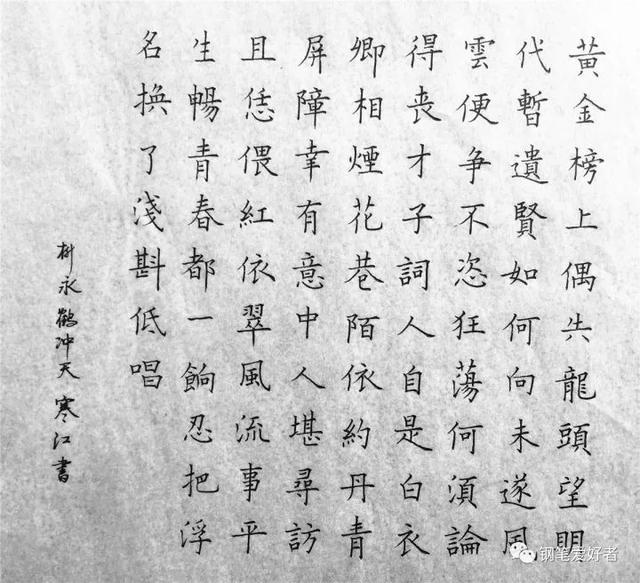 黃金榜上偶失龍頭望明
代暫遺賢如何向未遂風
雲便爭不恣狂蕩何須論
得喪才子詞人自是白衣
卿相煙花巷陌依約丹青
屏障幸有意中人堪尋訪
且恁偎紅依翠風流事平
生暢青春都一餉忍把浮
名換了淺斟低唱
柳永鶴冲天寒江書
钢笔爱好者